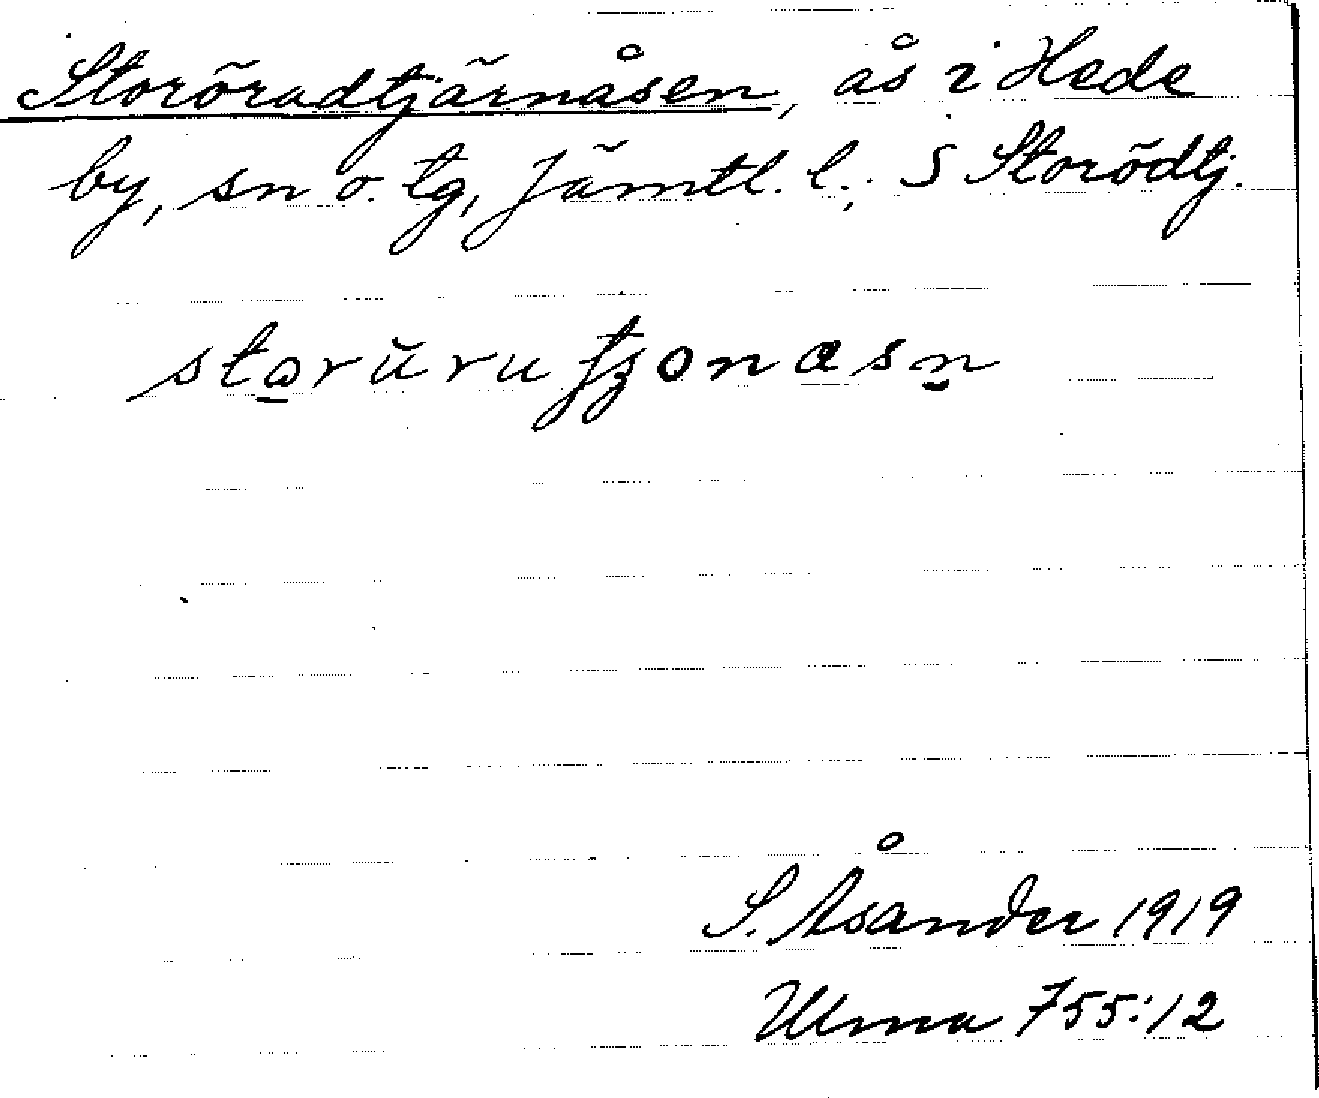 Storörudtjärnåsen, ås i Hede
by, sn o. tg, Jämtl. l.; S Storödtj.
storŭrutjonasn
S. Åsander 1919
Ulma 755:12